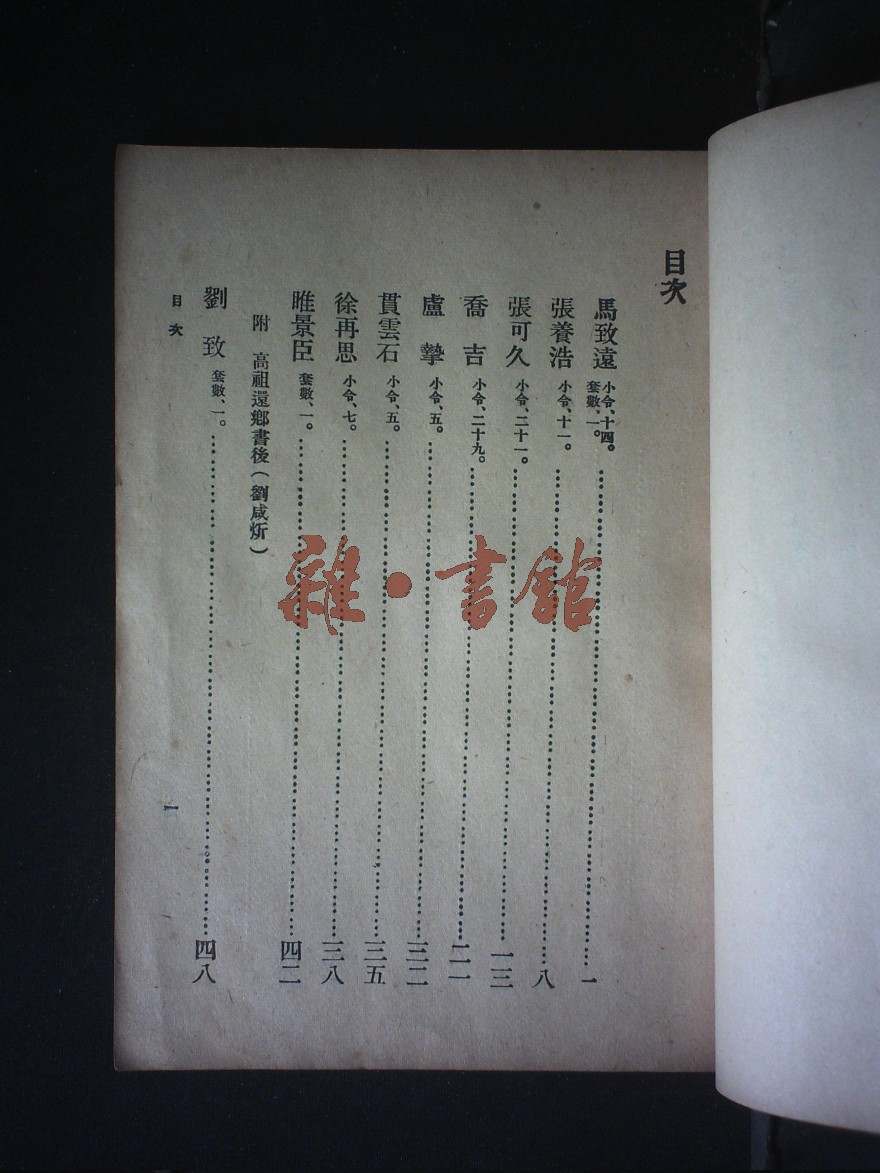 目次
馬致遠 小令、十四。套數、一。……一
張養浩 小令、十一。……八
張可久 小令、二十一。……一三
喬吉 小令、二十九。……二一
盧摯 小令、五。……三二
貫雲石 小令、五。……三五
徐再思 小令、七。……三八
睢景臣 套數、一。……四二
附 高祖還鄉書後（劉咸炘）
劉致 套數、一。……四八
目次
一
雜·書館